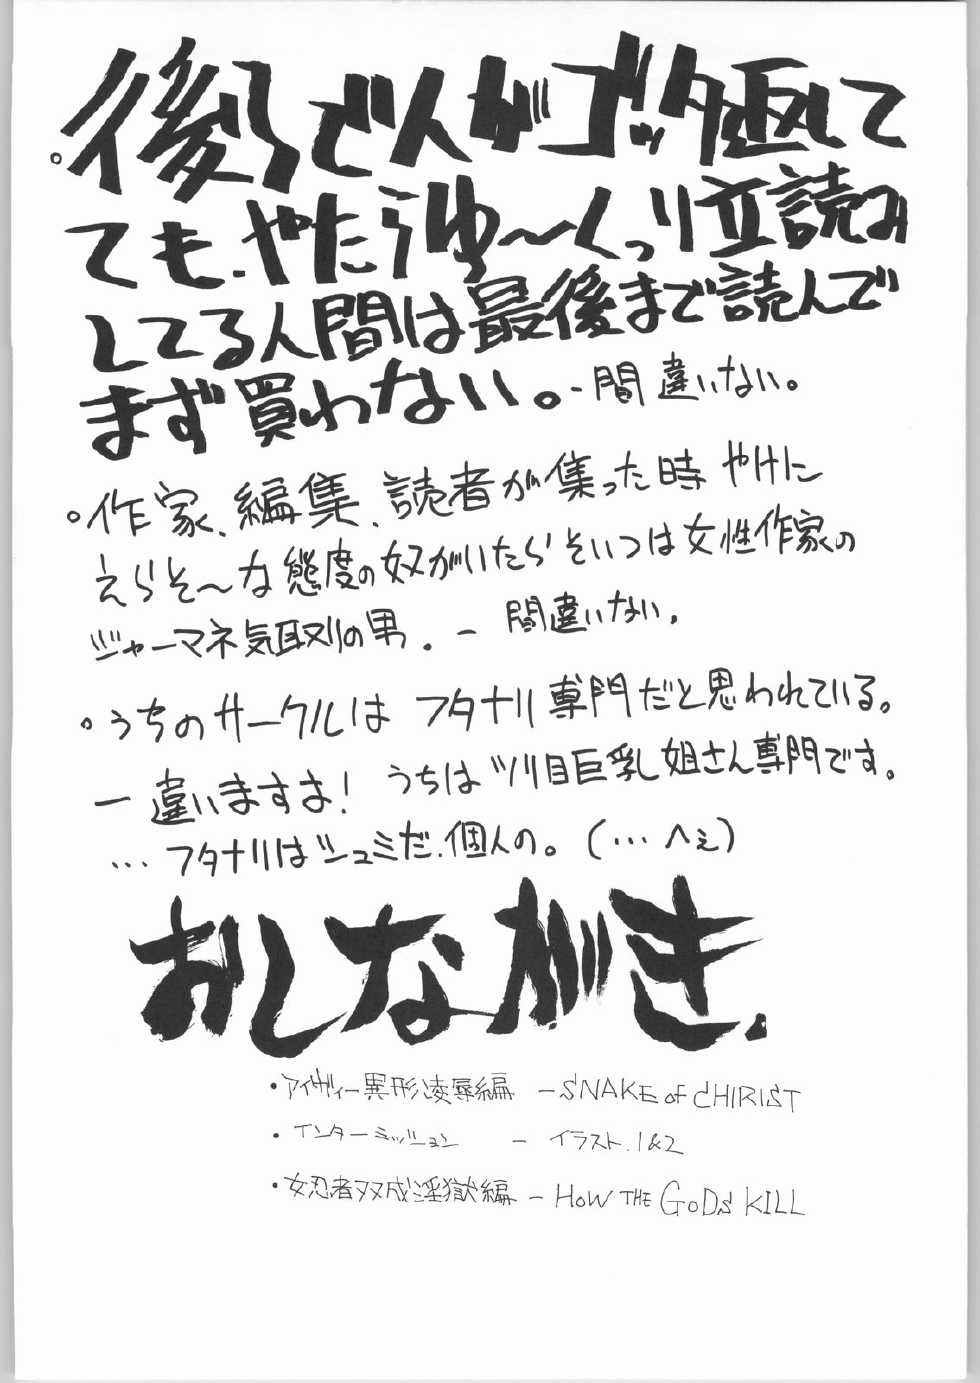 。後ろで人がゴッタ返して
ても、やたらゆ〜くっり立読み
してる人間は最後まで読んで
まず買わない。- 間違いない。
。作家、編集、読者が集った時 やけに
えらそ〜な態度の奴がいたらそいつは女性作家の
ジャーマネ気取りの男。ー 間違いない。
。うちのサークルは フタナリ専門だと思われている。
ー 違いますよ! うちは ツリ目巨乳姐さん専門です。
… フタナリはシュミだ、個人の。(… へぇ)
おしながき.
・アイヴィー異形凌辱編 ー SNAKE of CHIRIST
・インターミッション ー イラスト.1&2
・女忍者双成淫獄編 ー HOW THE GODS KILL